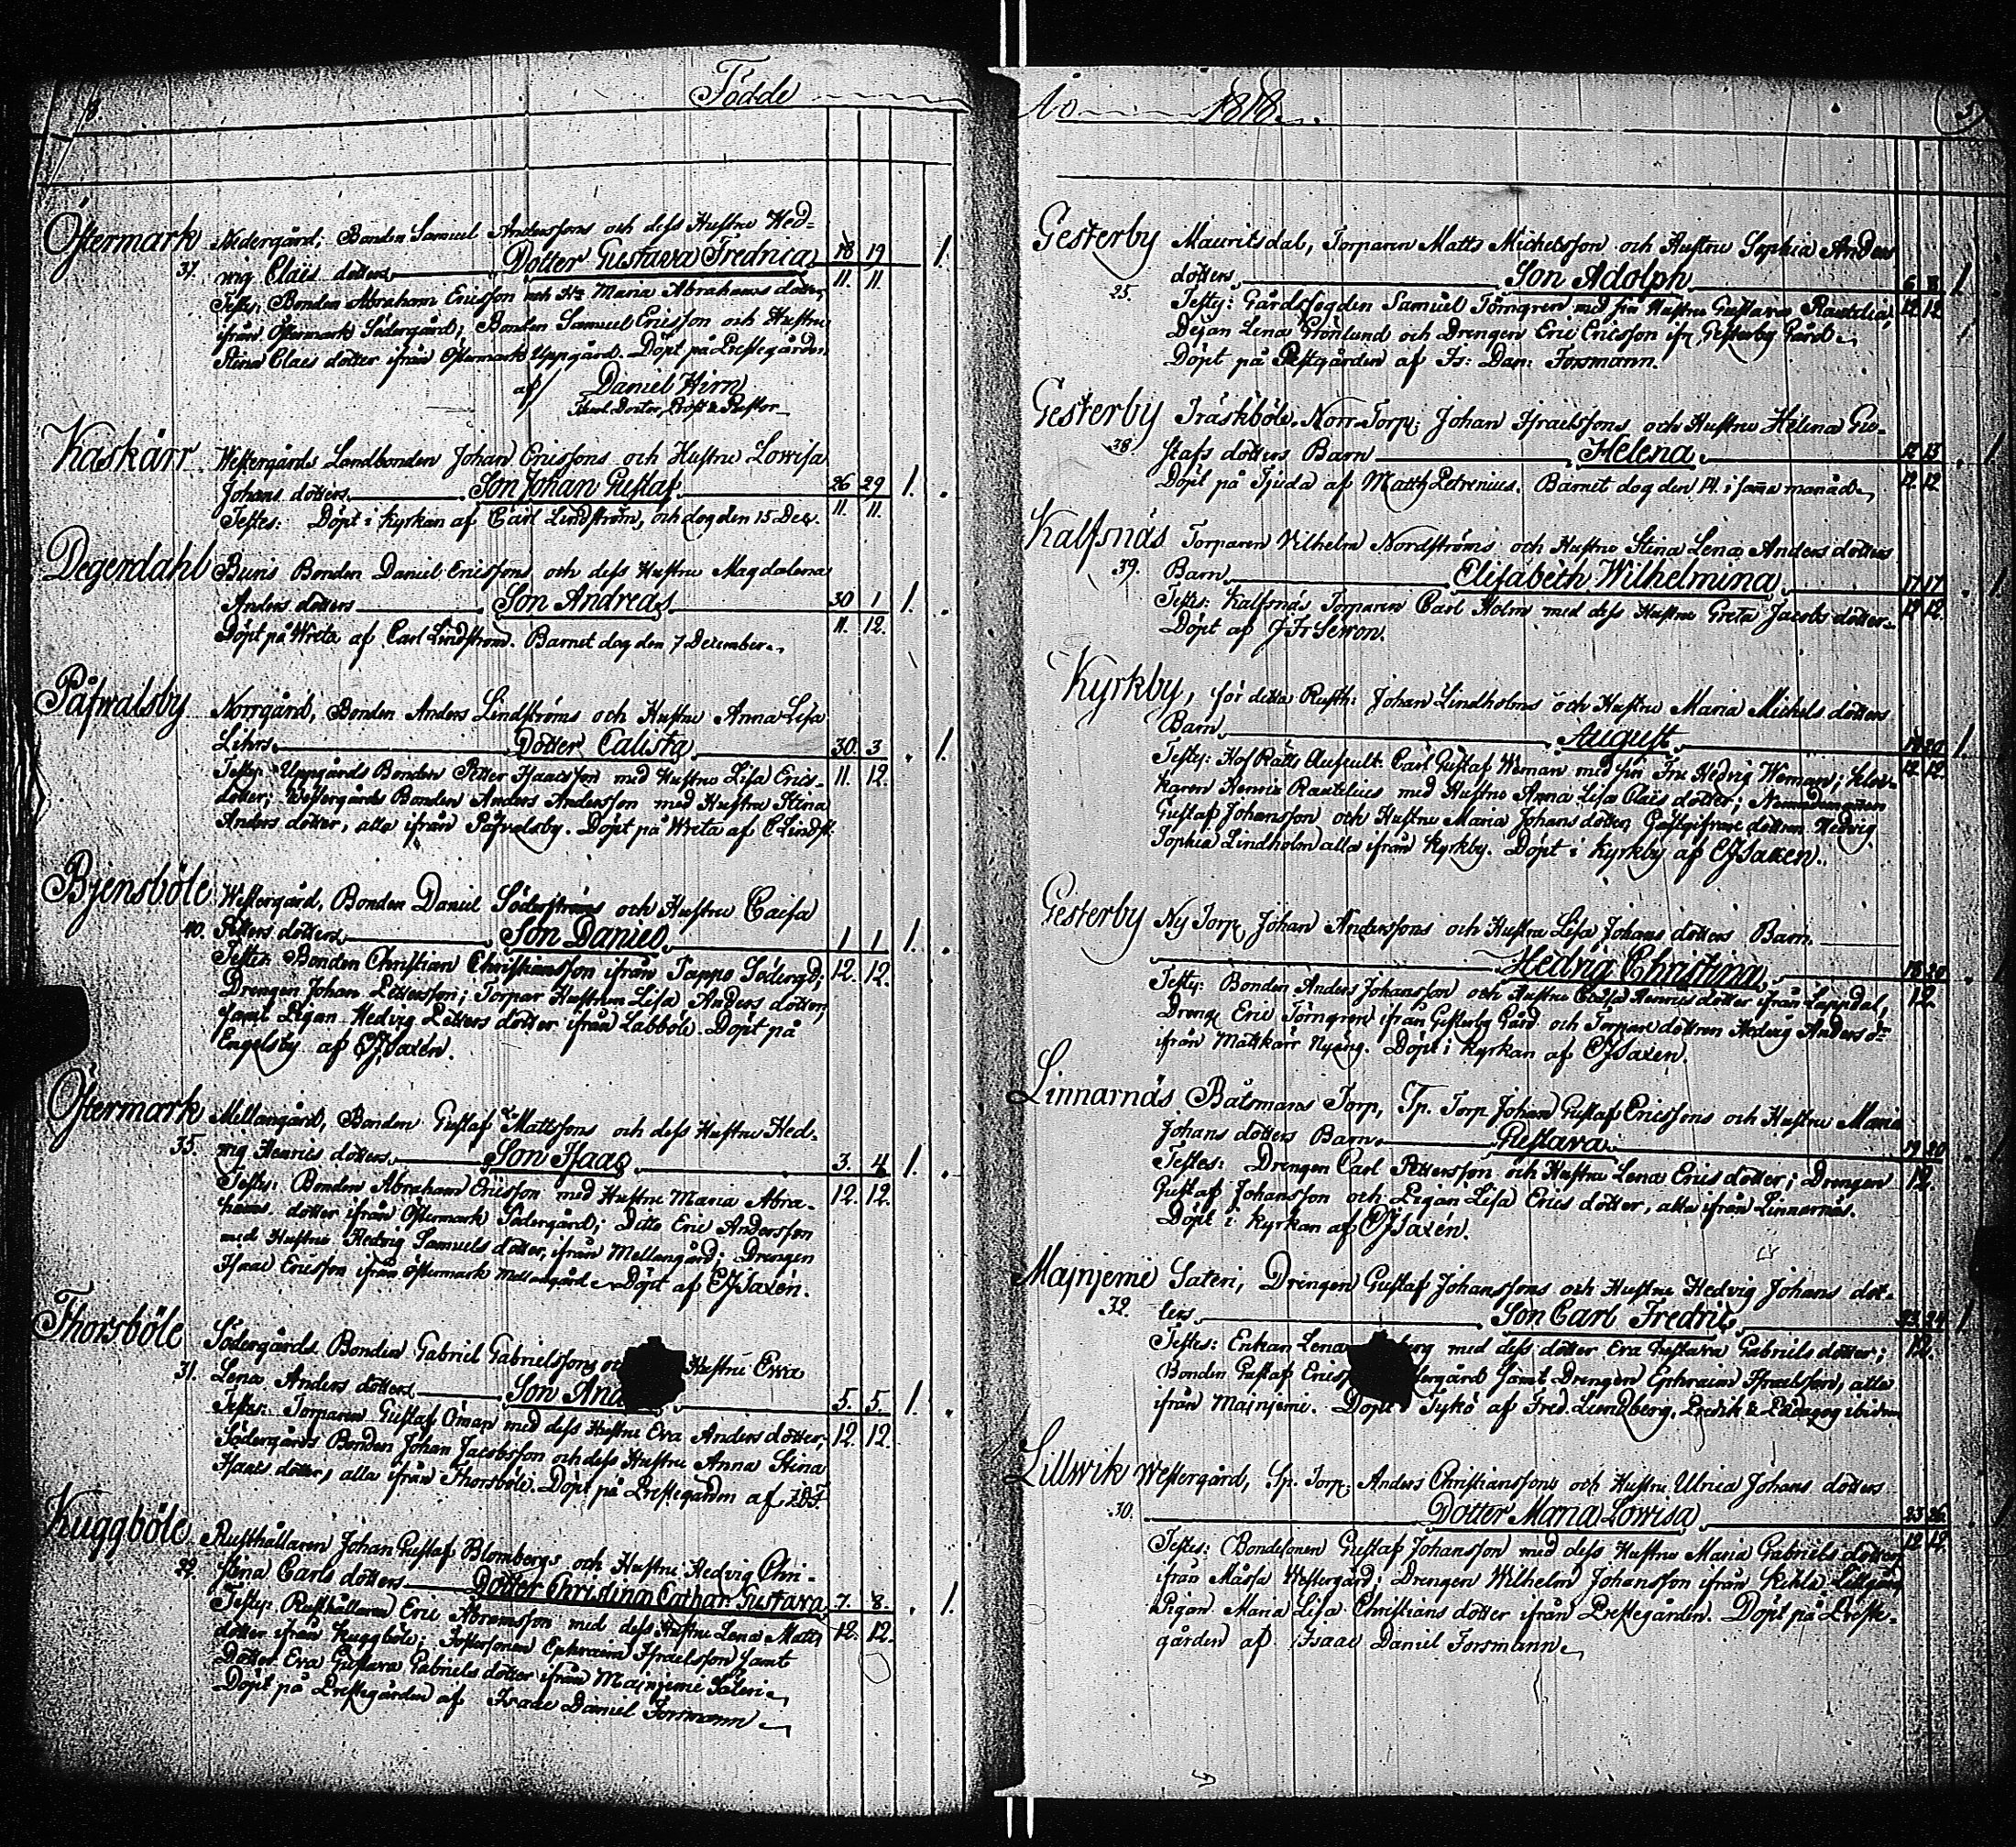 Födde
Östermark Nedergård, Bonden Samuel Anderssons och dess Hustru Hed-
37. wig Claës dotters Dotter Gustava Fredrica 18 19 1.
Testes: Bonden Abraham Ericsson och Hu Maria Abrahams dotter, 11. 11.
ifrån Östermark Södergård; Bonden Samuel Ericsson och Hustru
Stina Claes dotter ifrån Östermark Uppgård. Döpt på Prestegården
af Daniel Hirn
Doctor, Prost & Pastor
Kaskärr Westergårds Landbonden Johan Ericssons och Hustru Lowisa
Johans dotters Son Johan Gustaf 26 29 1.
Testes: Döpt i Kyrkan af Carl Lindström, och dog den 15 Dec. 11. 11.
Degerdahl Buris Bonden Daniel Ericssons och dess Hustru Magdalena
Anders dotters Son Andreas 30 1 1.
Döpt på Wreta af Carl Lindström. Barnet dog den 7 December. 11. 12.
Påfwalsby Norrgård, Bonden Anders Lindströms och Hustru Anna Lisa
Lihrs Dotter Calista 30. 3 1.
Testes: Uppgårds Bonden Petter Isaacsson med Hustru Lisa Erics- 11. 12.
dotter; Westergårds Bonden Anders Andersson med Hustru Stina
Anders dotter, alla ifrån Påfvalsby. Döpt på Wreta af C Lindst.
Bjensböle Westergård, Bonden Daniel Söderströms och Hustru Caisa
40. Petters dotters Son Daniel 1 1 1.
Testes: Bonden Christian Christiansson ifrån Pappo Södergd; 12. 12.
Drengen Johan Pettersson; Torpar Hustrun Lisa Anders dotter,
samt Pigan Hedvig Petters dotter ifrån Labböle. Döpt på
Engelsby af CJSaxén.
Östermark Mellangård, Bonden Gustaf Mattssons och dess Hustru Hed-
35. wig Henrics dotters Son Isaac 3. 4 1.
Testes: Bonden Abraham Ericsson med Hustru Maria Abra- 12. 12.
hams dotter ifrån Östermark Södergård; Ditto Eric Andersson
med Hustru Hedvig Samuels dotter, ifrån Mellangård; Drengen
Isaac Ericsson ifrån Östermark Mellangård. Döpt af CJSaxén.
Thorsböle Södergårds Bonden Gabriel Gabrielssons Hustru Ewa
31. Lena Anders dotters Son And 5. 5. 1.
Testes: Torparen Gustaf Öman med dess Hustru Eva Anders dotter; 12. 12.
Södergårds Bonden Johan Jacobsson och dess Hustru Anna Stina
Isaacs dotter, alla ifrån Thorsböle. Döpt på Prestegården af IDF
Kuggböle Rusthållaren Johan Gustaf Blombergs och Hustru Hedvig Chri-
29. stina Carls dotters Dotter Christina Cathar. Gustava 7. 8. 1.
Testes: Rusthållaren Eric Abramsson med dess Hustru Lena Matts 12. 12.
dotter ifrån Kuggböle; Ephraim Israelsson samt
Dotter Eva Gustava Gabriels dotter ifrån Majnjemi Säteri
Döpt på Prestegården af Isaac Daniel Forsmann
Ao 1818.
Gesterby Mauritsdal, Torparen Matts Michelsson och Hustru Sophia Anders
25. dotters Son Adolph 6 8 1
Testes: Gårdsfogden Samuel Törngren med sin Hustru Gustava Rautelia, 12 12
Dejan Lena Grönlund och Drengen Eric Ericsson ifr Gesterby Gård
Döpt på Prestgården af Is: Dan: Forsmann.
Gesterby Träskböle, Norr Torp: Johan Israelssons och Hustru Helena Gu-
38. stafs dotters Barn Helena 12 13 1
Döpt på Tjuda af Matth Petrenius. Barnet dog den 14 i samma manad. 12. 12
Kalfsnäs Torparen Vilhelm Nordströms och Hustru Stina Lena Anders dotters
39. Barn Elisabeth Wilhelmina 17 17 1
Testes: Kalfsnäs Torparen Carl Holm med dess Hustru Greta Jacobs dotter. 12 12.
Döpt af
Kyrkby, för detta Rusth: Johan Lindholms och Hustru Maria Michels dotters
Barn August 19 20 1.
Testes: HofRätts Auscult. Carl Gustaf Weman med sin Fru Hedvig Weman; Kloc- 12 12.
karen Henric Rautelius med Hustru Anna Lisa Claës dotter; Nemndemannen
Gustaf Johansson och Hustru Maria Johans dotter, Gästgifvare dottren Hedvig
Sophia Lindholm alla ifrån Kyrkby. Döpt i Kyrkby af CJSaxen.
Gesterby Ny Torp Johan Anderssons och Hustru Lisa Johans dotters Barn
Hedvig Christina 18 20
Testes: Bonden Anders Johansson och Hustru Caisa Henrics dotter ifrån Lappdal, 12.
Dreng Eric Törngren ifrån Gesterby Gård och Torpare dottren Hedvig Anders dr
ifrån Mattkärr Nyäng. Döpt i Kyrkan af CJSaxén.
Linnarnäs Båtsmans Torp, Sp. Torp Johan Gustaf Ericssons och Hustru Maria
Johans dotters Barn Gustava 19 20
Testes: Drengen Carl Pettersson och Hustru Lena Erics dotter; Drengen 12.
Gustaf Johansson och Pigan Lisa Erics dotter, alla ifrån Linnarnäs.
Döpt i Kyrkan af CJSaxén.
Majnjemi Säteri, Drengen Gustaf Johanssons och Hustru Hedvig Johans dot-
32. ters Son Carl Fredric 23 24 1
Testes: Enkan Lena berg med dess dotter Eva Gustava Gabriels dotter; 12.
Bonden Gustaf Erics ergård samt Drengen Ephraim Israelsson, alla
ifrån Majnjemi. Döpt i Tykö af Fred. Lundberg, Predik & Pædagog ibidem
Lillwik Westergård, Sp. Torp: Anders Christianssons och Hustru Ulrica Johans dotters
30. Dotter Maria Lowisa 23 26
Testes: Bondesonen Gustaf Johansson med dess Hustru Maria Gabriels dotter 12 12
ifrån Måssa Westergård; Drengen Wilhelm Johansson ifrån Lillgård
Pigan Maria Lisa Christians dotter ifrån Prestegården. Döpt på Preste-
gården af Isaac Daniel Forsmann